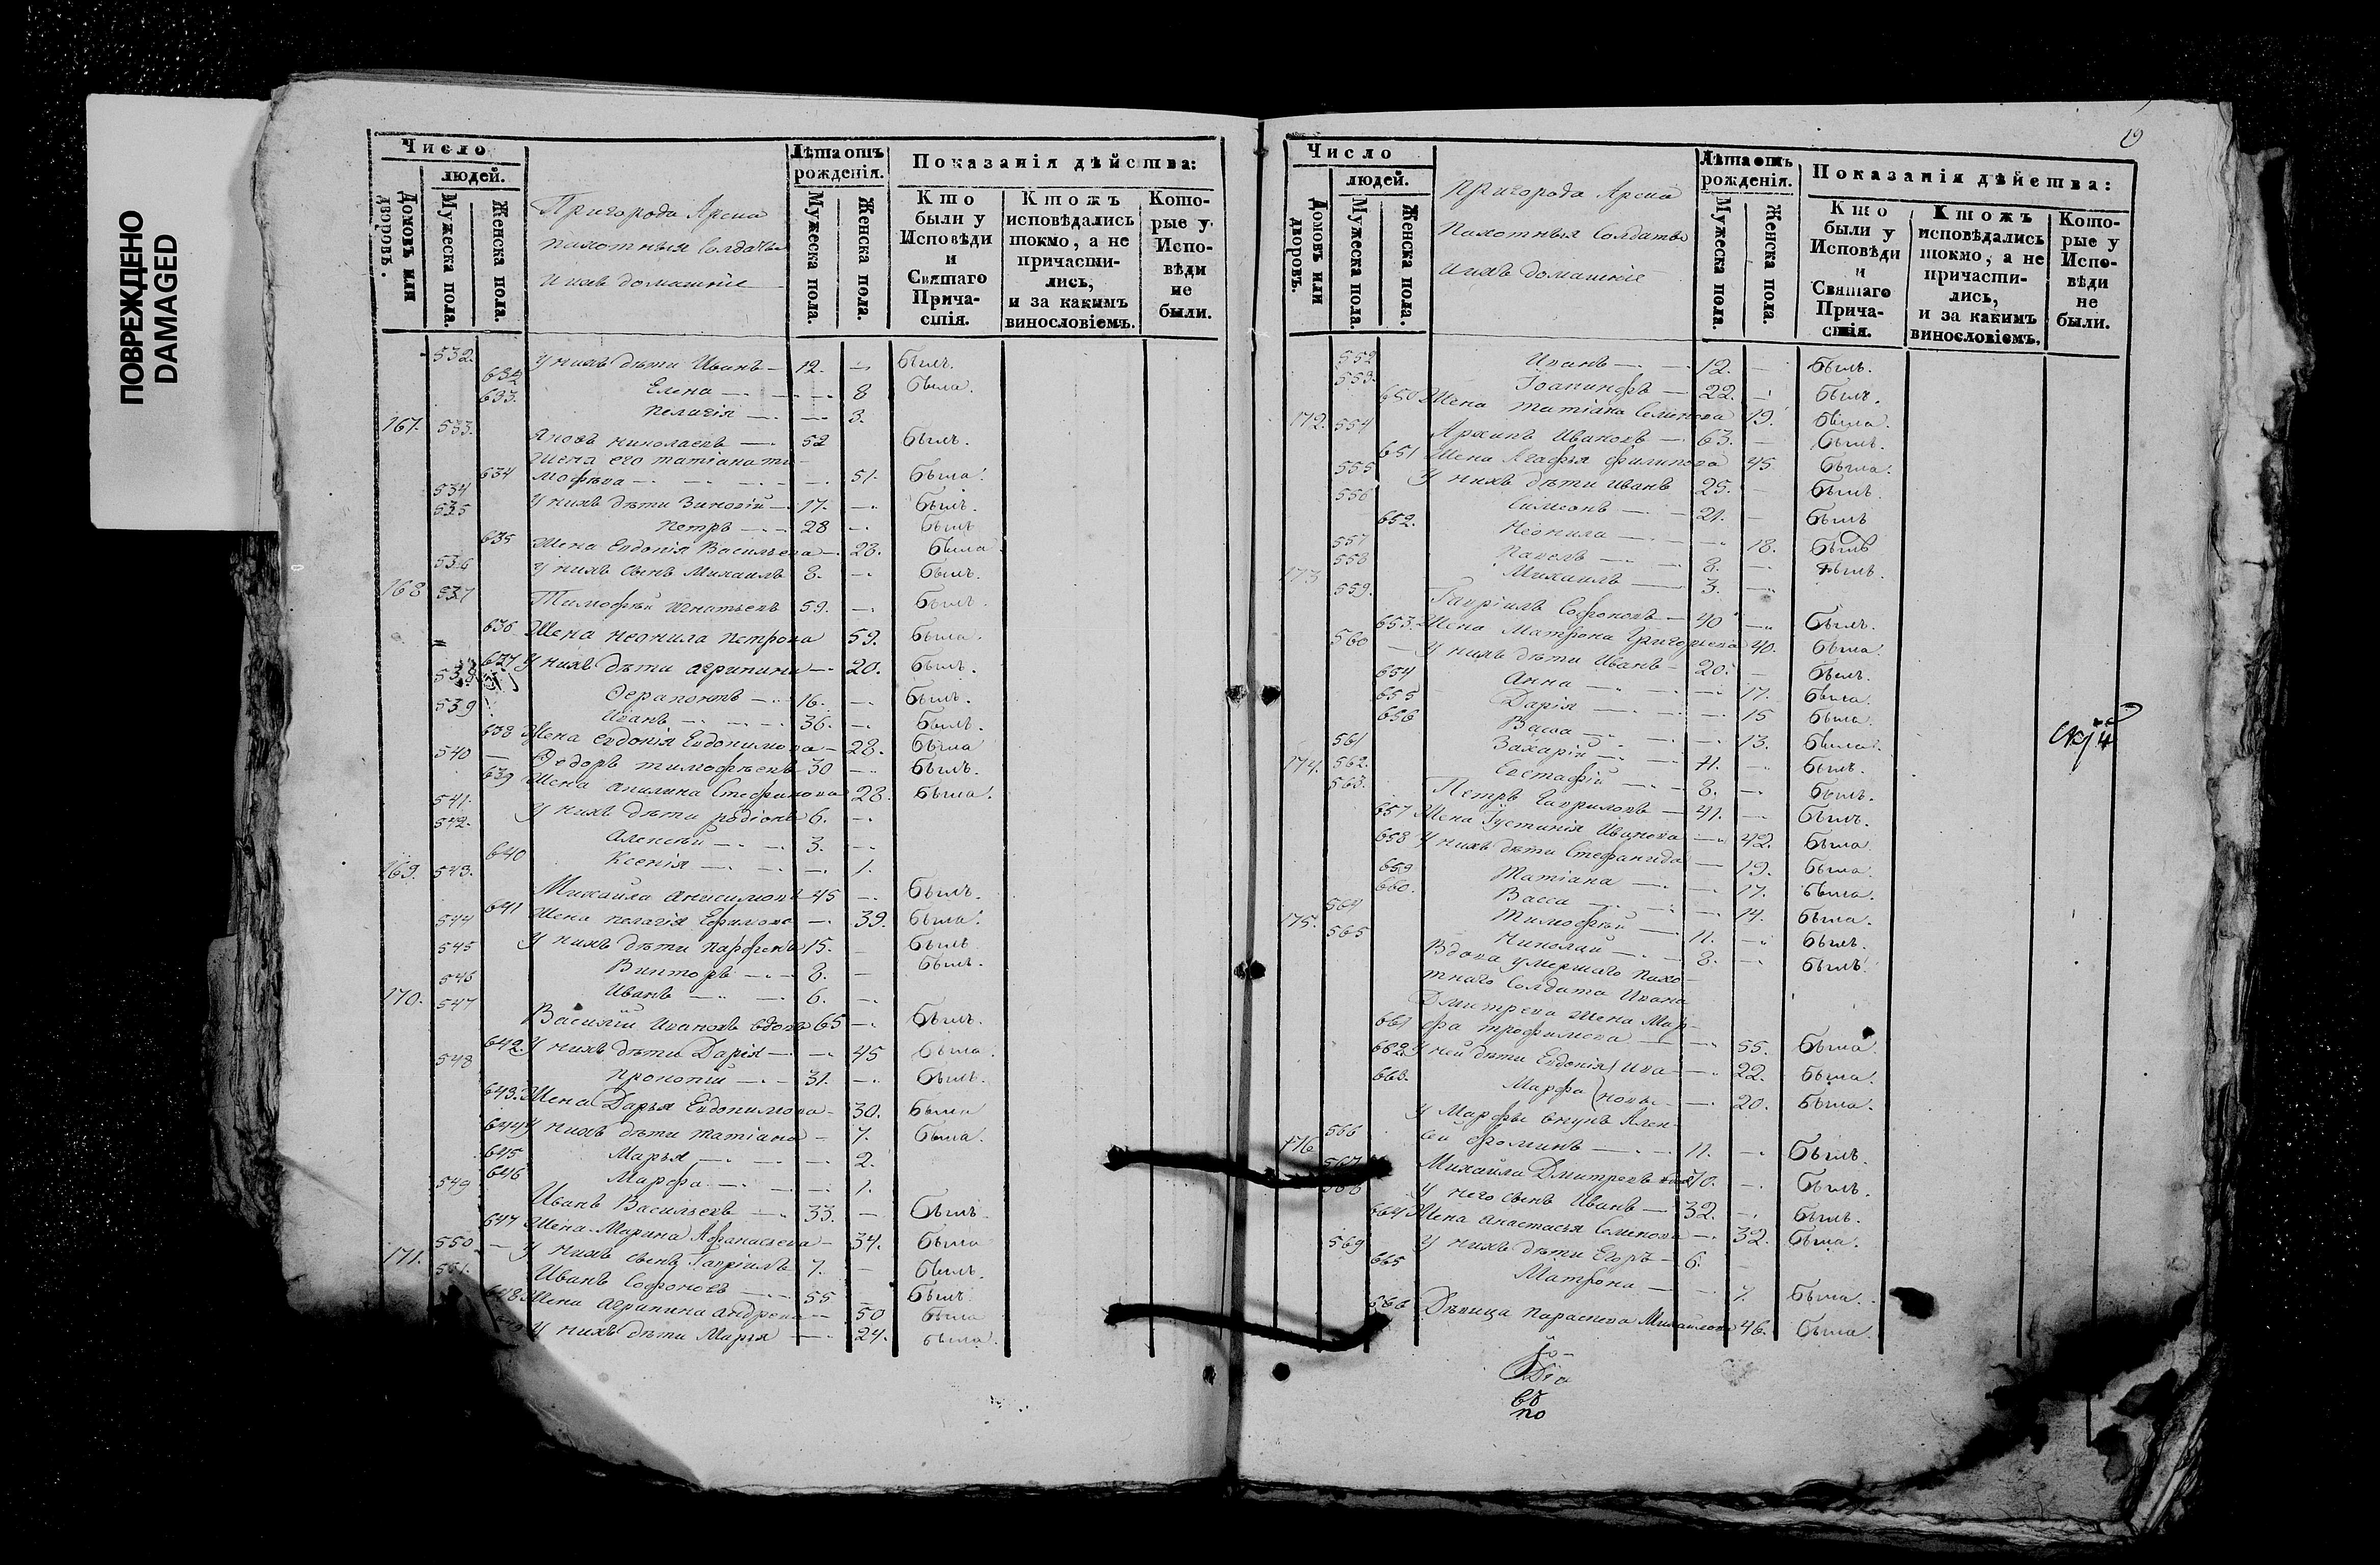 ПОВРЕЖДЕНО
DAMAGED
Число
людей.
Домовъ или дворовъ.
Мужеска пола.
Женска пола.
Пригорода Арска
пахотныя Солдаты
и ихъ домашніе
Лѣта отъ рожденія.
Мужеска пола.
Женска пола.
Показанія дѣйства:
Кто были у Исповѣди и Святаго Причастія.
Ктожъ исповѣдались токмо, а не причастились, и за какимъ винословіемъ.
Которые у Исповѣди не были.
532. У нихъ дѣти Иванъ 12. былъ.
632 Елена 8 была.
633. Пелагія 3.
167. 533. Яковъ Николаевъ 52 былъ.
Жена его татіана ти-
634 мофѣева 51. была.
534 У нихъ дѣти Зиновій 17. былъ.
535 Петръ 28 былъ
635 Жена Евдокія Васильева 28. была
536 У нихъ сынъ Михаилъ 8. былъ.
168 537 Тимофѣй Игнатьевъ 59. былъ.
636 Жена неонила петрова 59. была.
637 У нихъ дѣти агрипина 20. былъ.
538 Ферапонтъ 16. былъ.
539 Иванъ 36. былъ.
638 Жена евдокія Евдокимова 28. была
540 Федоръ тимофѣевъ 30 былъ.
639 Жена акилина Стефанова 28. была.
541. У нихъ дѣти родіонъ 6.
542. алексѣй 3.
640 Ксенія 1.
169. 543. Михайла анисимовъ 45 былъ.
641 Жена пелагія Ефимова 39. была.
544 У нихъ дѣти парфенъ 15. былъ
545 Викторъ 8. былъ.
546 Иванъ 6.
170. 547 Василій Ивановъ вдовъ 65 былъ.
642. У нихъ дѣти Дарія 45 была.
548 Прокопій 31. былъ.
643. Жена Дарья Евдокимова 30. была
644 У нихъ дѣти татіана 7. была.
645 Марья 2.
646 Марфа 1.
549 Иванъ Васильевъ 33. былъ.
647 Жена Марина Афанасьева 34. была
550 У нихъ сынъ Гавріилъ 7. былъ.
171. 551. Иванъ Софоновъ 55 былъ.
648 Жена агрипина андреева 50 была
649 У нихъ дѣти Марья 24. была.
19
Число
людей.
Домовъ или дворовъ.
Мужеска пола.
Женска пола.
Пригорода Арска
Пахотныя Солдаты
и ихъ домашніе
Лѣта отъ рожденія.
Мужеска пола.
Женска пола.
Показанія дѣйства:
Кто были у Исповѣди и Святаго Причастія.
Ктожъ исповѣдались токмо, а не причастились, и за какимъ винословіемъ.
Которые у Исповѣди не были.
552 Иванъ 12. былъ.
553. Іоакинфъ 22. былъ.
650 Жена татіана Семенова 19. была.
172. 554 Архипъ Ивановъ 63. былъ.
651 Жена Агафья филипова 45. была.
555 У нихъ дѣти иванъ 25. былъ.
556 Симеонъ 21. былъ
652. Неонила 18. былъ
557 Павелъ 8. былъ.
558 Михаилъ 3.
173 559. Гавріилъ Софоновъ 40 былъ.
653. Жена Матрона Григорьева 40. была.
560 У нихъ дѣти Иванъ 20. былъ.
654 Анна 17. была.
655 Дарія 15 была.
656 Васса 13. была.
561 Захарій 11. былъ.
562. Евстафій 8. былъ.
174. 563. Петръ Гавриловъ 41. былъ.
657 Жена Іустинія Иванова 42. была
658 У нихъ дѣти Стефанида 19. была.
659 Татіана 17. была.
660. Васса 14. была.
564 Тимофѣй 11. былъ.
565 Николай 8. былъ.
175. Вдова умершаго пахо-
тнаго Солдата Ивана
Дмитрева жена Мар-
661 фа трофимова 55. была.
662. У ней дѣти Евдокія Ива- 22. была.
663. Марфа новы 20. была.
У Марфы внукъ Алек-
566 сѣй фоминъ 11. былъ.
176 567 Михайла Дмитревъ 70. былъ.
568 У него сынъ Иванъ 32. былъ.
664 Жена анастасья Семенова 32. была.
569 У нихъ дѣти Егоръ 6.
665 Матрона 7. была.
666 Дѣвица параскева Михайлова 46. была.
по